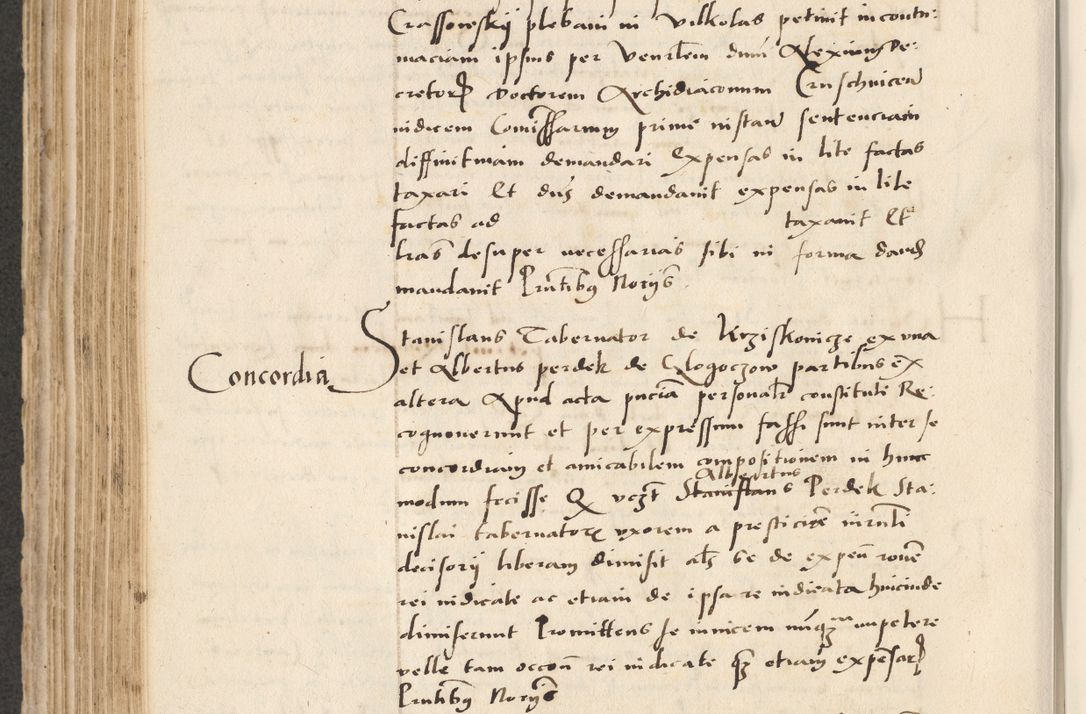 Crassowskij plebani in Vilkolas petiuit in contu-
maciam ipsius per Venerlem dnm Alexium De-
cretorum Doctorem Archidiaconum Cruschuicen
iudicem Comissarium prime instan sentenciam
diffinitiuam demandari Expensas in lite factas
taxari Et dns demandauit expensas in lite
factas ad taxauit Et
lras desuper necessarias sibi in forma dand
mandauit Pntibus Norijs
Stanislaus Tabernator de Krziskouicze ex vna
Concordia
et Albertus perdek de Glogoczow partibus ex
altera Apud acta pncia personalr constituti Re-
cognouerunt et per expressum fassi sunt inter se
concordiam et amicabilem compositionem in hunc
Albertus
modum fecisse Q vczt Stanislaus Perdek Sta-
nislai tabernatoris vxorem a iurnti
decisorij liberam dimisit als se de expen
rei iudicate ac etiam de ipsa re iudicata hincinde
dimiserunt Promittens se inuicem nunqm impetere
velle tam occon rei iudicate qz etiam expensar
Pntibus Norijs